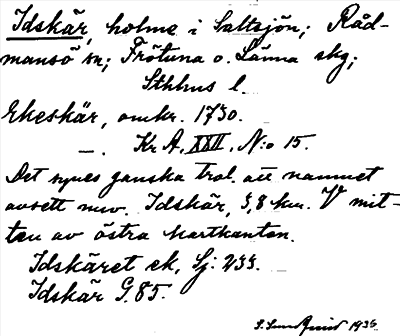 Idskär, holme i Saltsjön; Råd-
mansö sn; Frötuna o. Länna skg;
Sthlms l.
Ekeskär, omkr. 1730.
—. Kr A, XXII, N:o 15.
Det synes ganska trol. att namnet
avsett nuv. Idskär, 3,8 km. V mit-
ten av östra kartkanten.
Idskäret ek, Sj: 233.
Idskär G. 85.
1935